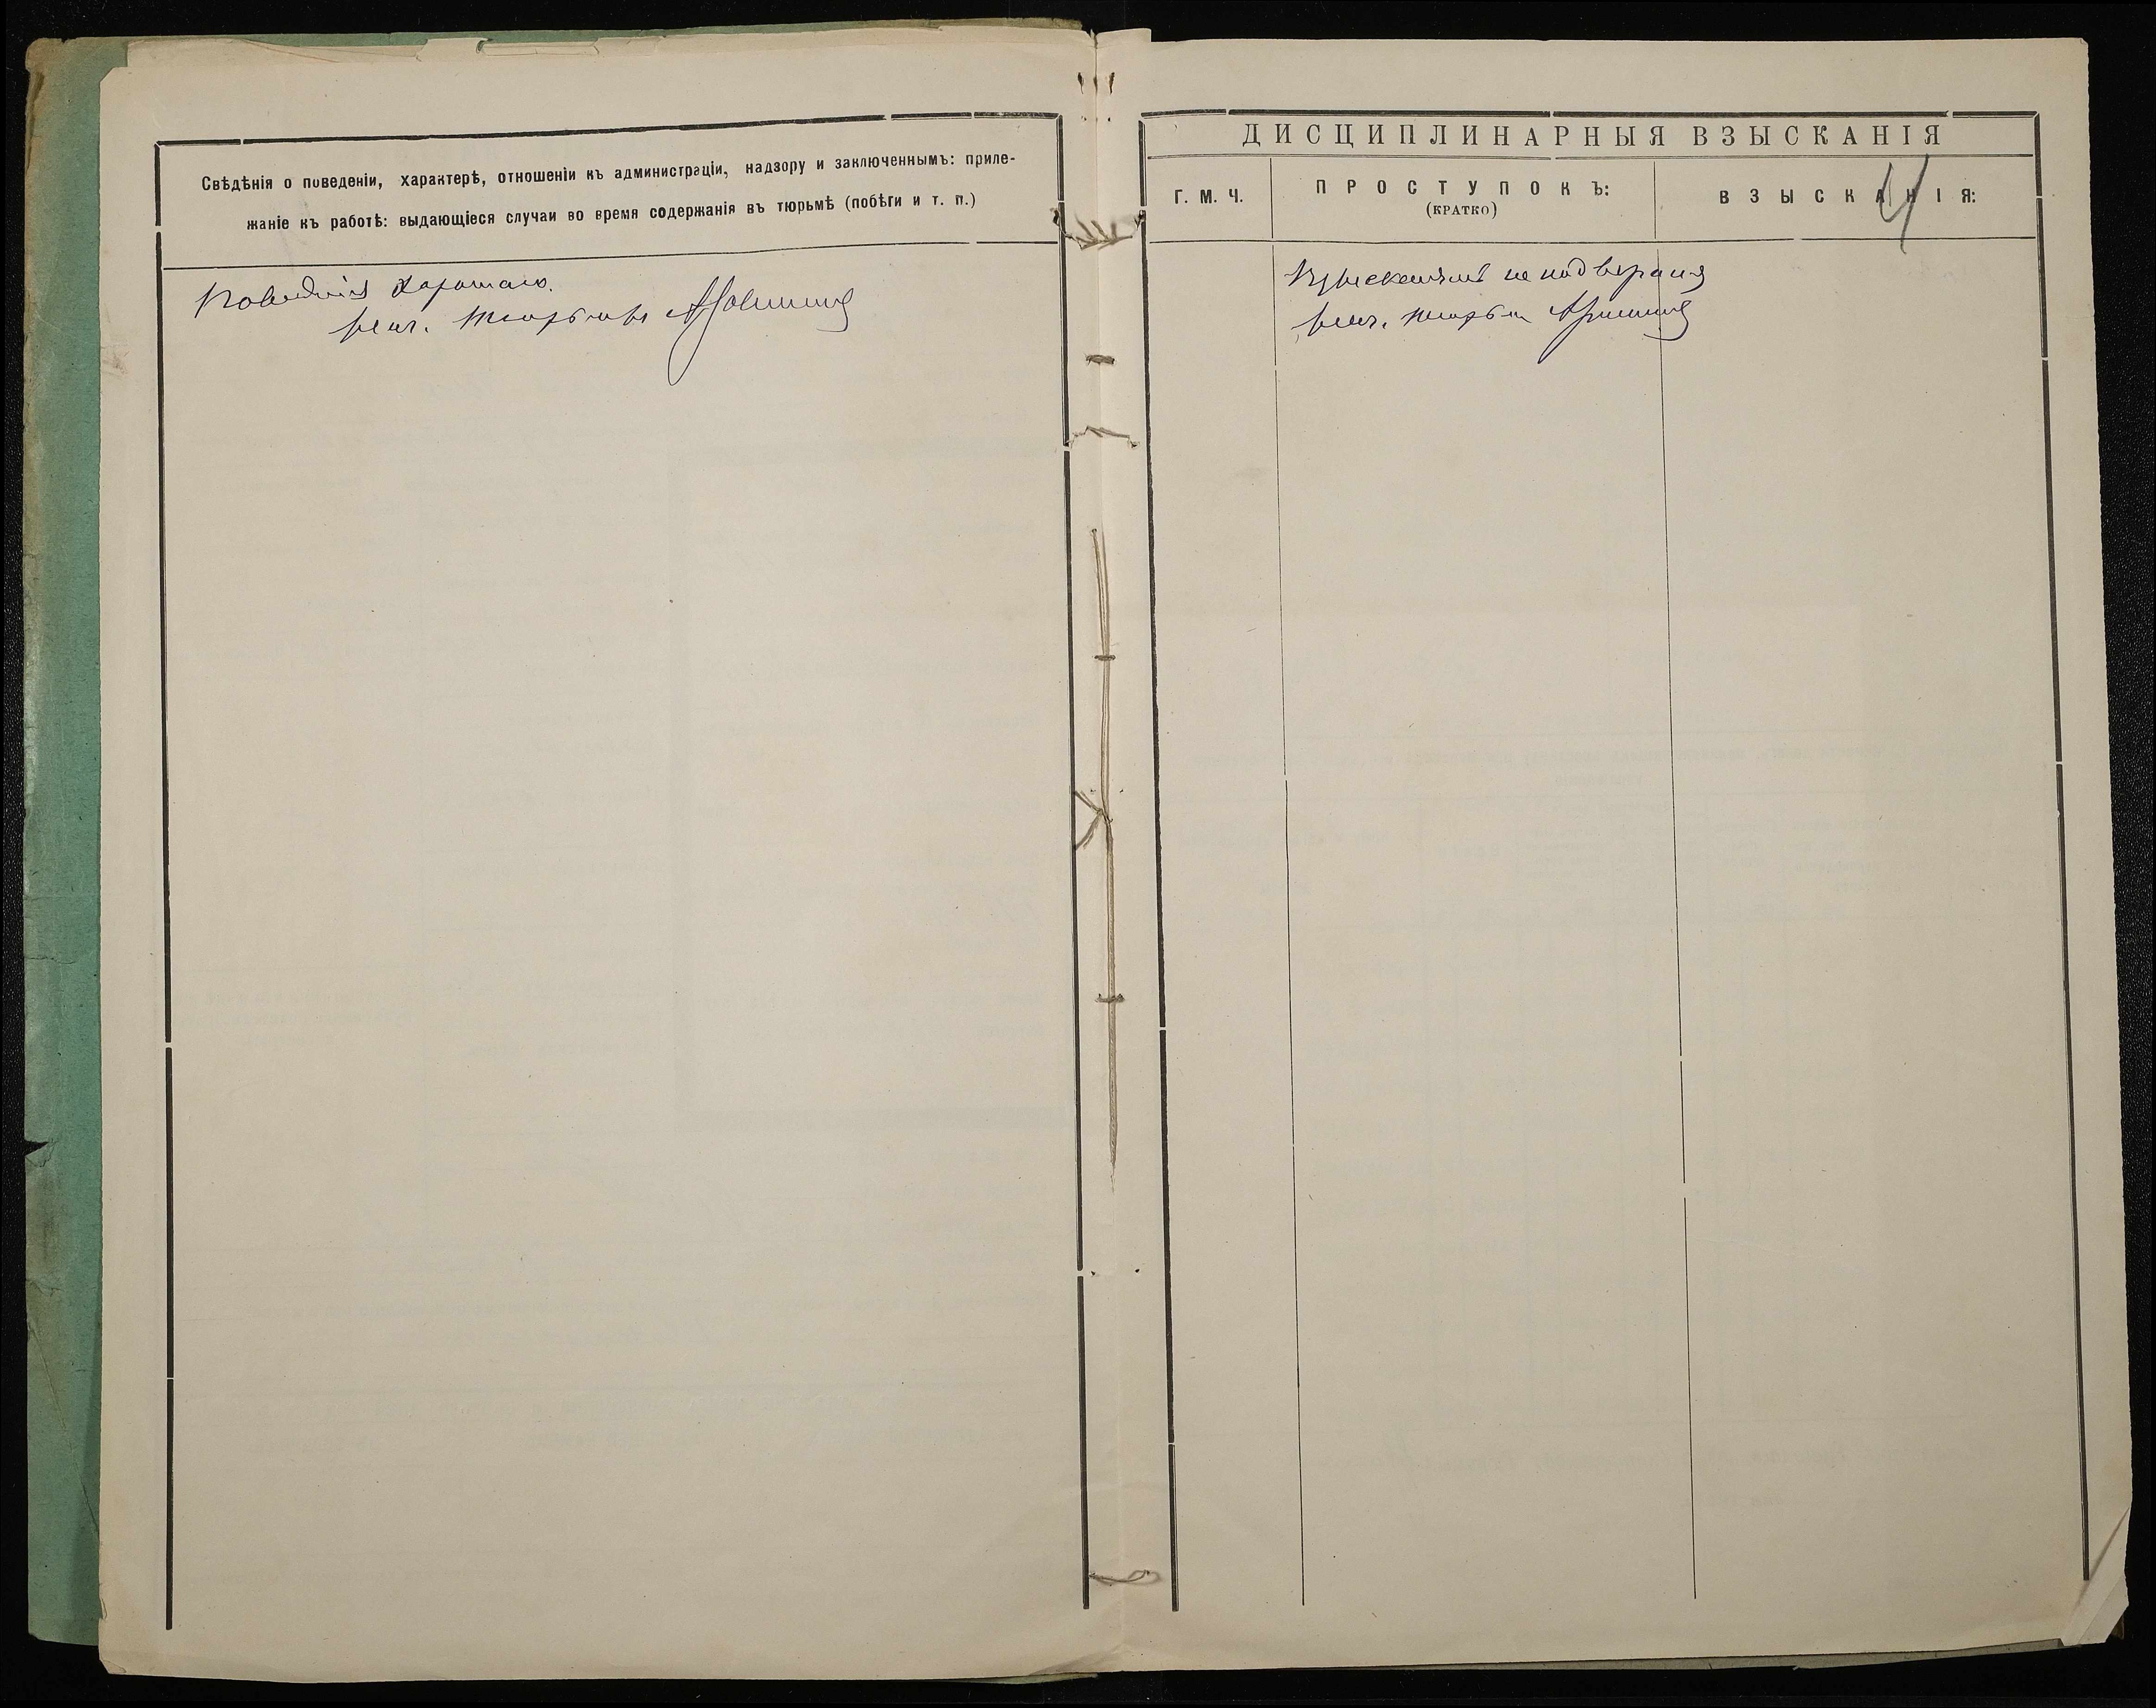 Свѣдѣнія о поведеніи, характерѣ, отношеніи къ администраціи, надзору и заключеннымъ: приле-
жаніе къ работѣ: выдающіеся случаи во время содержанія въ тюрьмѣ (побѣги и т. п.)
Поведенія хорошаго.
Нач. тюрьмы
ДИСЦИПЛИНАРНЫЯ ВЗЫСКАНІЯ
Г. М. Ч.
ПРОСТУПОКЪ:
(КРАТКО)
ВЗЫСКАНІЯ:
4
Взысканіямъ не подвергался
Нач. тюрьмы